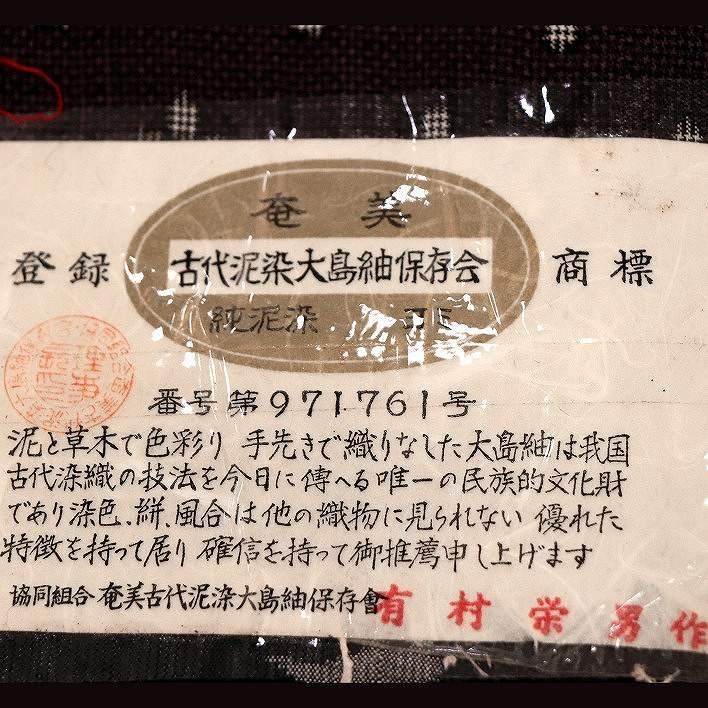 奄美
登録 古代泥染大島紬保存会 商標
純泥染
番号第971761号
泥と草木で色彩り 手先きで織りなした大島紬は我国
古代染織の技法を今日に傳へる唯一の民族的文化財
であり染色、絣、風合は他の織物に見られない優れた
特徴を持って居り確信を持って御推薦申し上げます
協同組合 奄美古代泥染大島紬保存會
有村栄男作